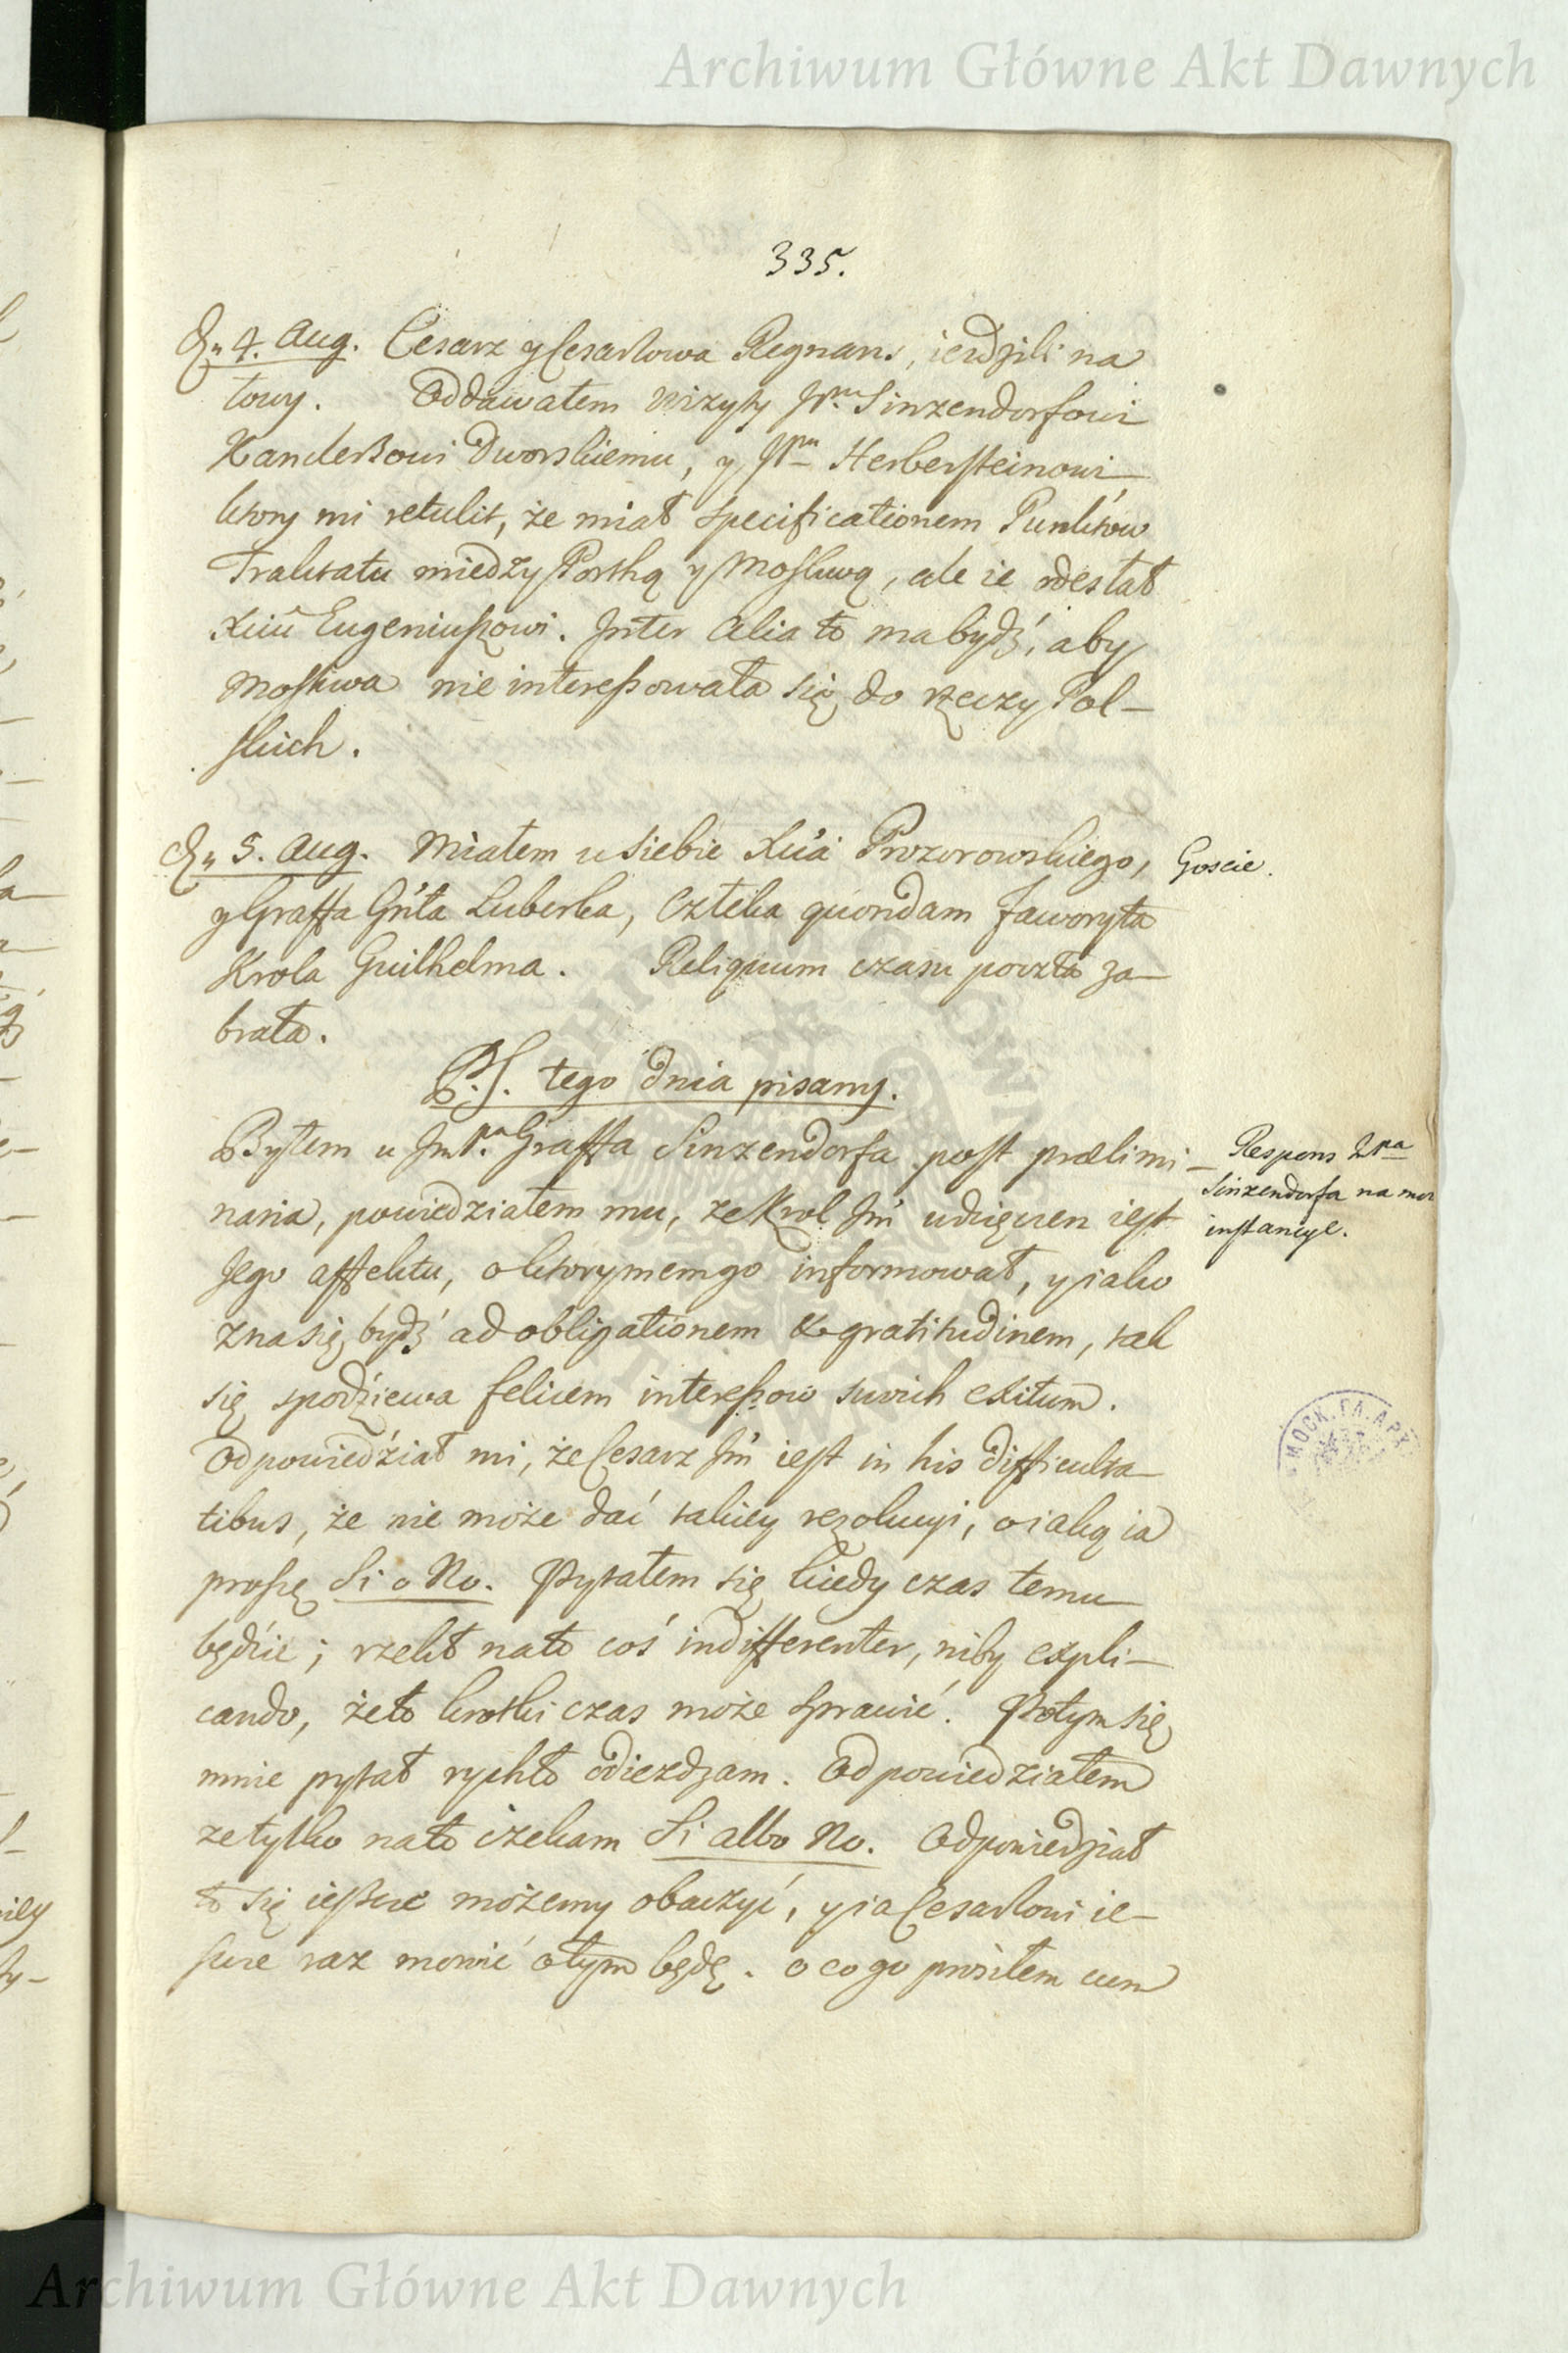 Archiwum Główne Akt Dawnych
335.
Dn 4. Aug. Cesarz y Cesarzowa Regnans, ieździli na
łowy. Oddawałem wizyty JP. Sinzendorfowi
Kanclerzowi Dworskiemu, y JPnu Herbersteinowi
ktory mi retulit, że miał specificationem Punktow
Traktatu między Portką y Moskwą, ale ie odesłał
Xciu Eugeniuszowi. Inter alia to ma bydź, aby
Moskwa nie interessowała się do rzeczy Pol-
skich.
Dn 5. Aug. Miałem u siebie Xcia Prozorowskiego,
Goscie.
y Graffa Gn'ła Luberka, Człeka quondam faworyta
Krola Guilhelma. Reliquum czasu poczta za-
brała.
P.S. tego dnia pisany.
Byłem u JmPa Graffa Sinzendorfa post prælimi-
naria, powiedziałem mu, że Krol Jm' udzięczen iest
Jego affektu, o ktorym em go informował, y iako
zna się bydź ad obligationem & gratitudinem, tak
się spodziewa felicem interessow swoich exitum.
Respons
Sinzendorfa na
instancye.
Odpowiedział mi, że Cesarz Jm' iest in his difficulta-
tibus, że nie może dać takiey rezolucyi, o iaką ia
proszę Si o No. Pytałem się kiedy czas temu
będzie; rzekł na to coś indifferenter, niby expli-
cando, że to krotki czas może sprawić. Potym się
mnie pytał rychło odiezdzam. Odpowiedziałem
ze tylko na to czekam Si albo No. Odpowiedział
to się ieszcze możemy obaczyć, y ia Cesarzowi ie-
szcze raz mowić o tym będę. o co go prosiłem cum
МОСК. ГЛ. АРХ.
Archiwum Główne Akt Dawnych